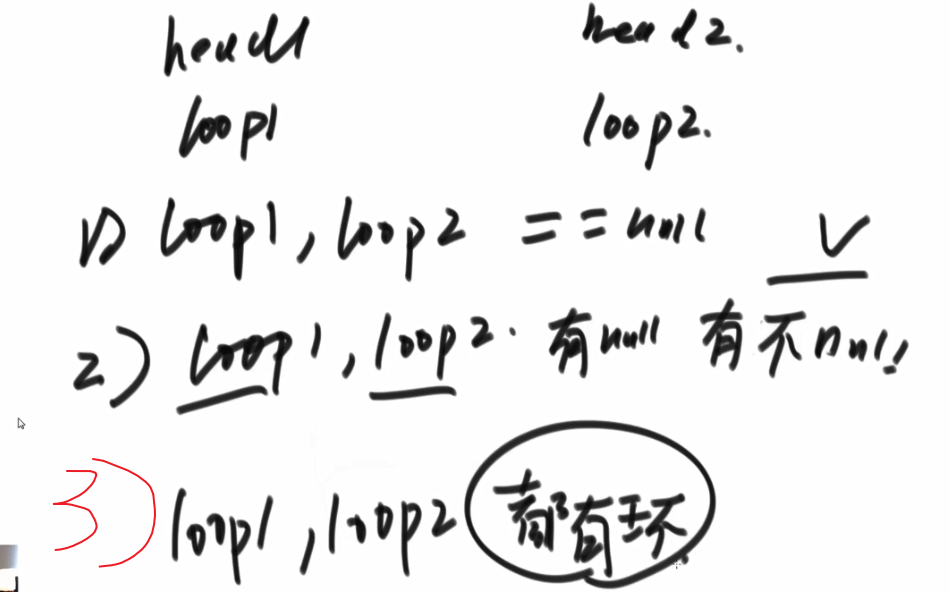 head1 head2.
loop1 loop2.
1) loop1, loop2 == null
2) loop1, loop2. 有null 有不null!
3) loop1, loop2 都有环